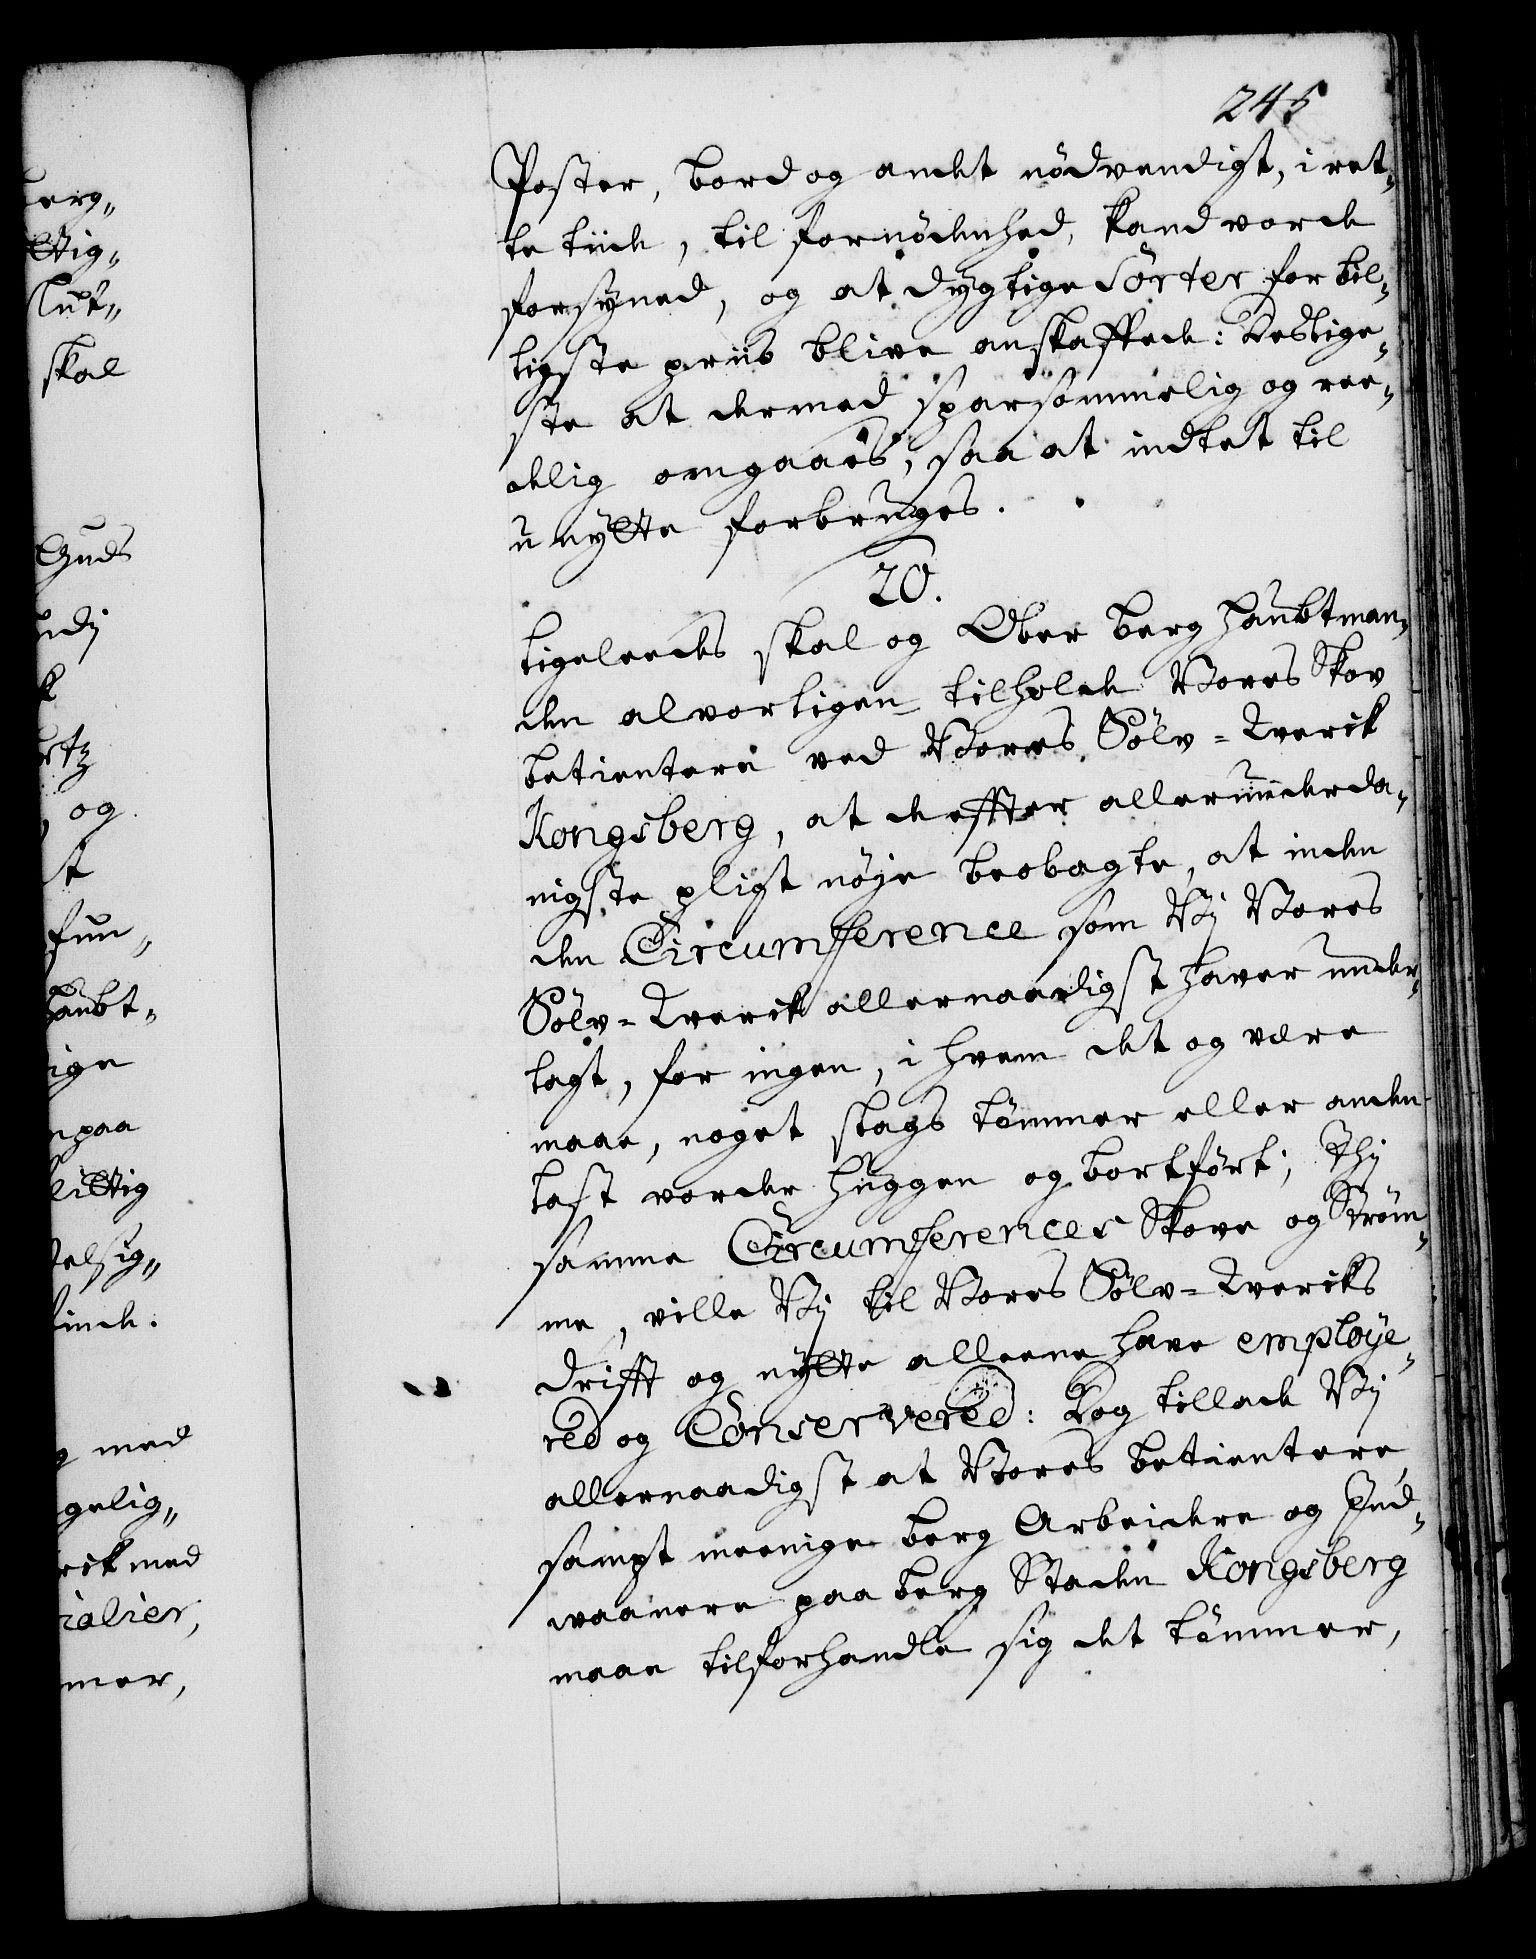 245
Poster, bord og andet nödvendigt, i ret„
te tiide, til fornödenhed, kand vorde
forsÿned, og at dygtige Sorter for bil„
ligste priis blive anskaffede: Deslige„
ste at dermed sparsommelig og ree„
delig omgaaes, saa at indtet til
unÿtte forbruges.
20.
Ligeleedes skal og Ober berg Haubtman„
den alvorligen tilholde Vores Skov
betientere ved Vores Sölv-Verck
Kongsberg, at de effter allerunderda„
nigste pligt nöje beobagte, at inden
den Circumference som Vj Vores
Sölv-Verck allernaadigst haver under„
lagt, for ingen, i hvem det og være
maae, noget slags tömmer eller anden
last vorder huggen og bortfört; Thj
samme Circumferences Skove og Ström„
me, ville Vj til Vores Sölv-Vercks
drifft og nÿtte alleene have employe„
red og Conservered: Dog tillade Vj
allernaadigst at Vores betientere
sampt meenige berg Arbeidere og Ind„
vaanere paa berg Staden Kongsberg
maae tilforhandle sig det tömmer,
erg„
ttig„
skal
Guds
og
fun„
haubt„
ige
paa
littig
inde:
med
gelig„
rck med
ialier,
mer,